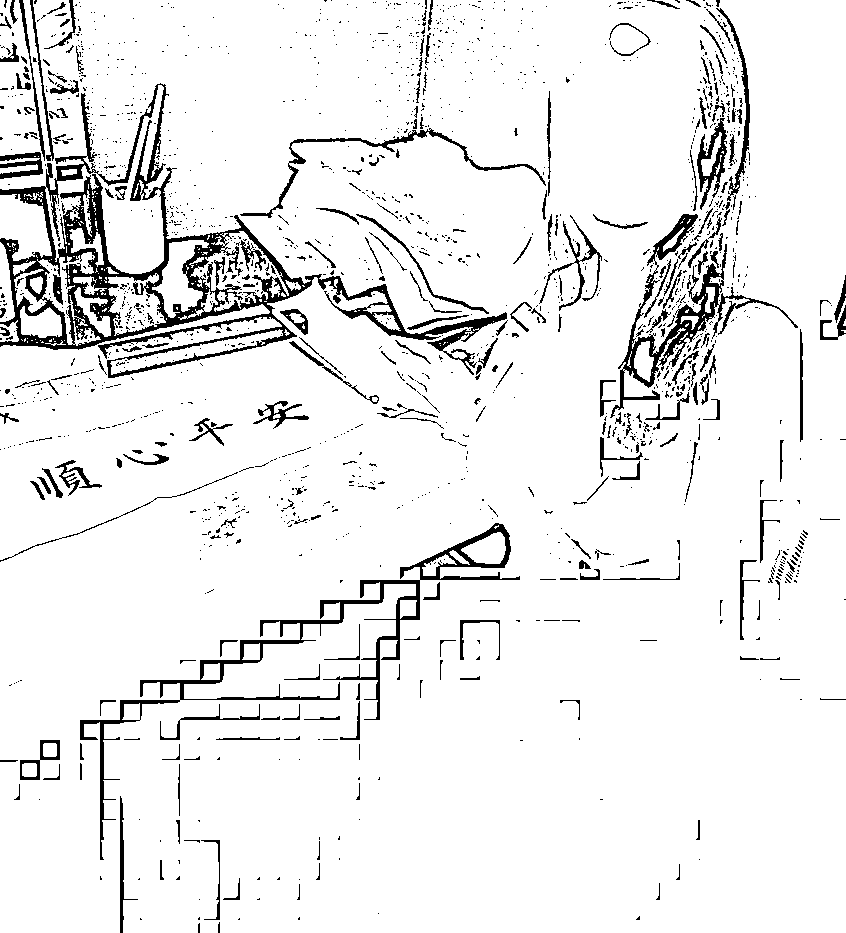 順心平安